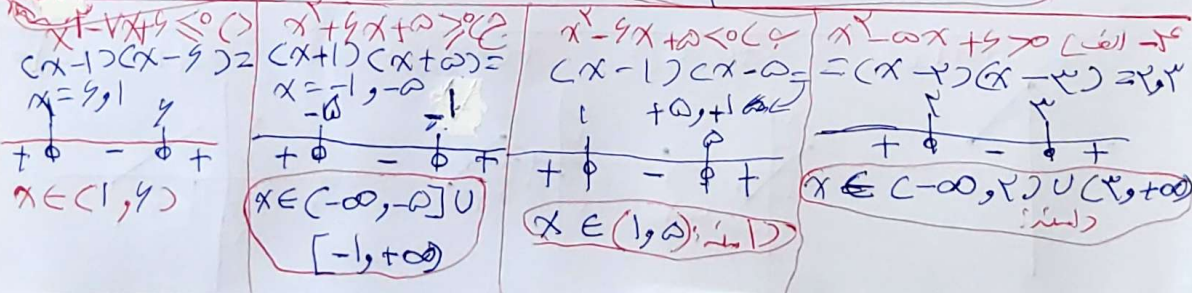 ۲- الف) x^۲ - ۵x + ۶ > ۰
= (x - ۲)(x - ۳) = ۲,۳
۲ ۳
+ ۰ - ۰ +
x ∈ (-∞, ۲) ∪ (۳, +∞)
دامنه:
ب) x^۲ - ۶x + ۵ < ۰
(x - ۱)(x - ۵ =
+۵, +۱
۱ ۵
+ ۰ - ۰ +
دامنه: x ∈ (۱, ۵)
ج) x^۲ + ۶x + ۵ ≥ ۰
(x + ۱)(x + ۵) =
x = -۱, -۵
-۵ -۱
+ ۰ - ۰ +
x ∈ (-∞, -۵] ∪
[-۱, +∞)
د) x^۲ - ۷x + ۶ ≤ ۰
(x - ۱)(x - ۶) =
x = ۶, ۱
۱ ۶
+ ۰ - ۰ +
x ∈ (۱, ۶)